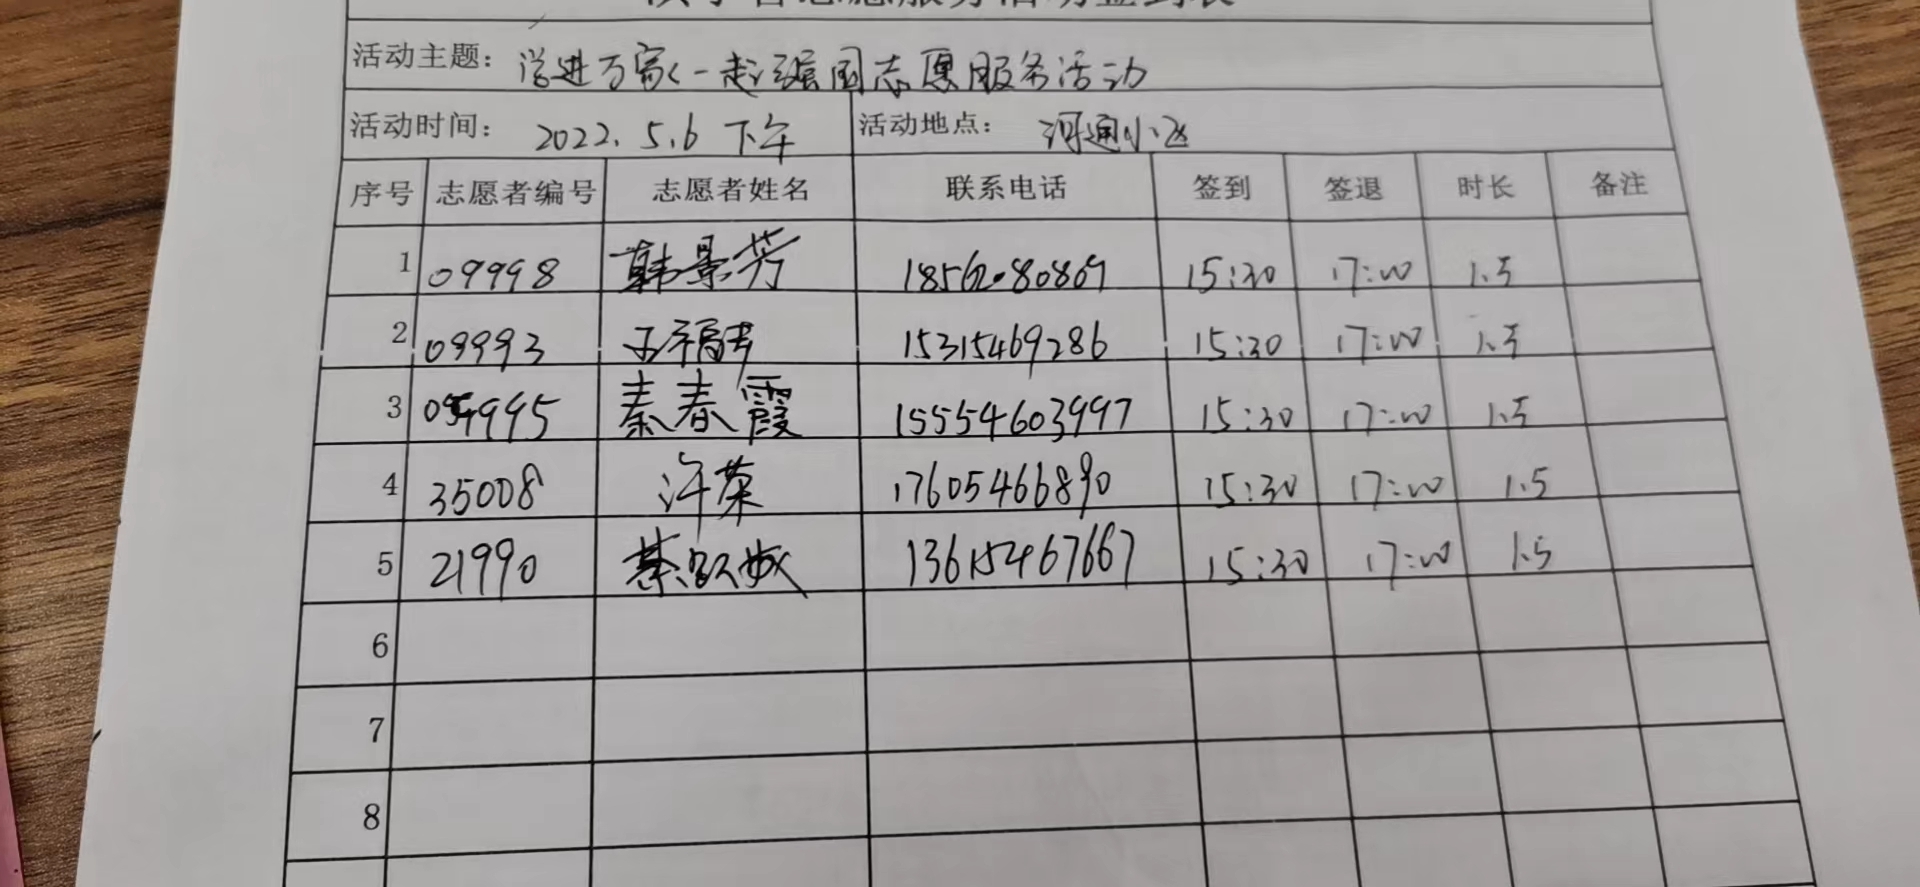 志愿服务活动签到表
活动主题： 学进万家 一起强国志愿服务活动
活动时间： 2022.5.6 下午 活动地点： 河通小区
序号 志愿者编号 志愿者姓名 联系电话 签到 签退 时长 备注
1 09998 韩景芳 15:30 17:00 1.5
2 09993 15315469286 15:30 17:00 1.5
3 秦春霞 15554603997 15:30 17:00 1.5
4 35008 许菜 17605466890 15:30 17:00 1.5
5 21990 13615467667 15:30 17:00 1.5
6
7
8